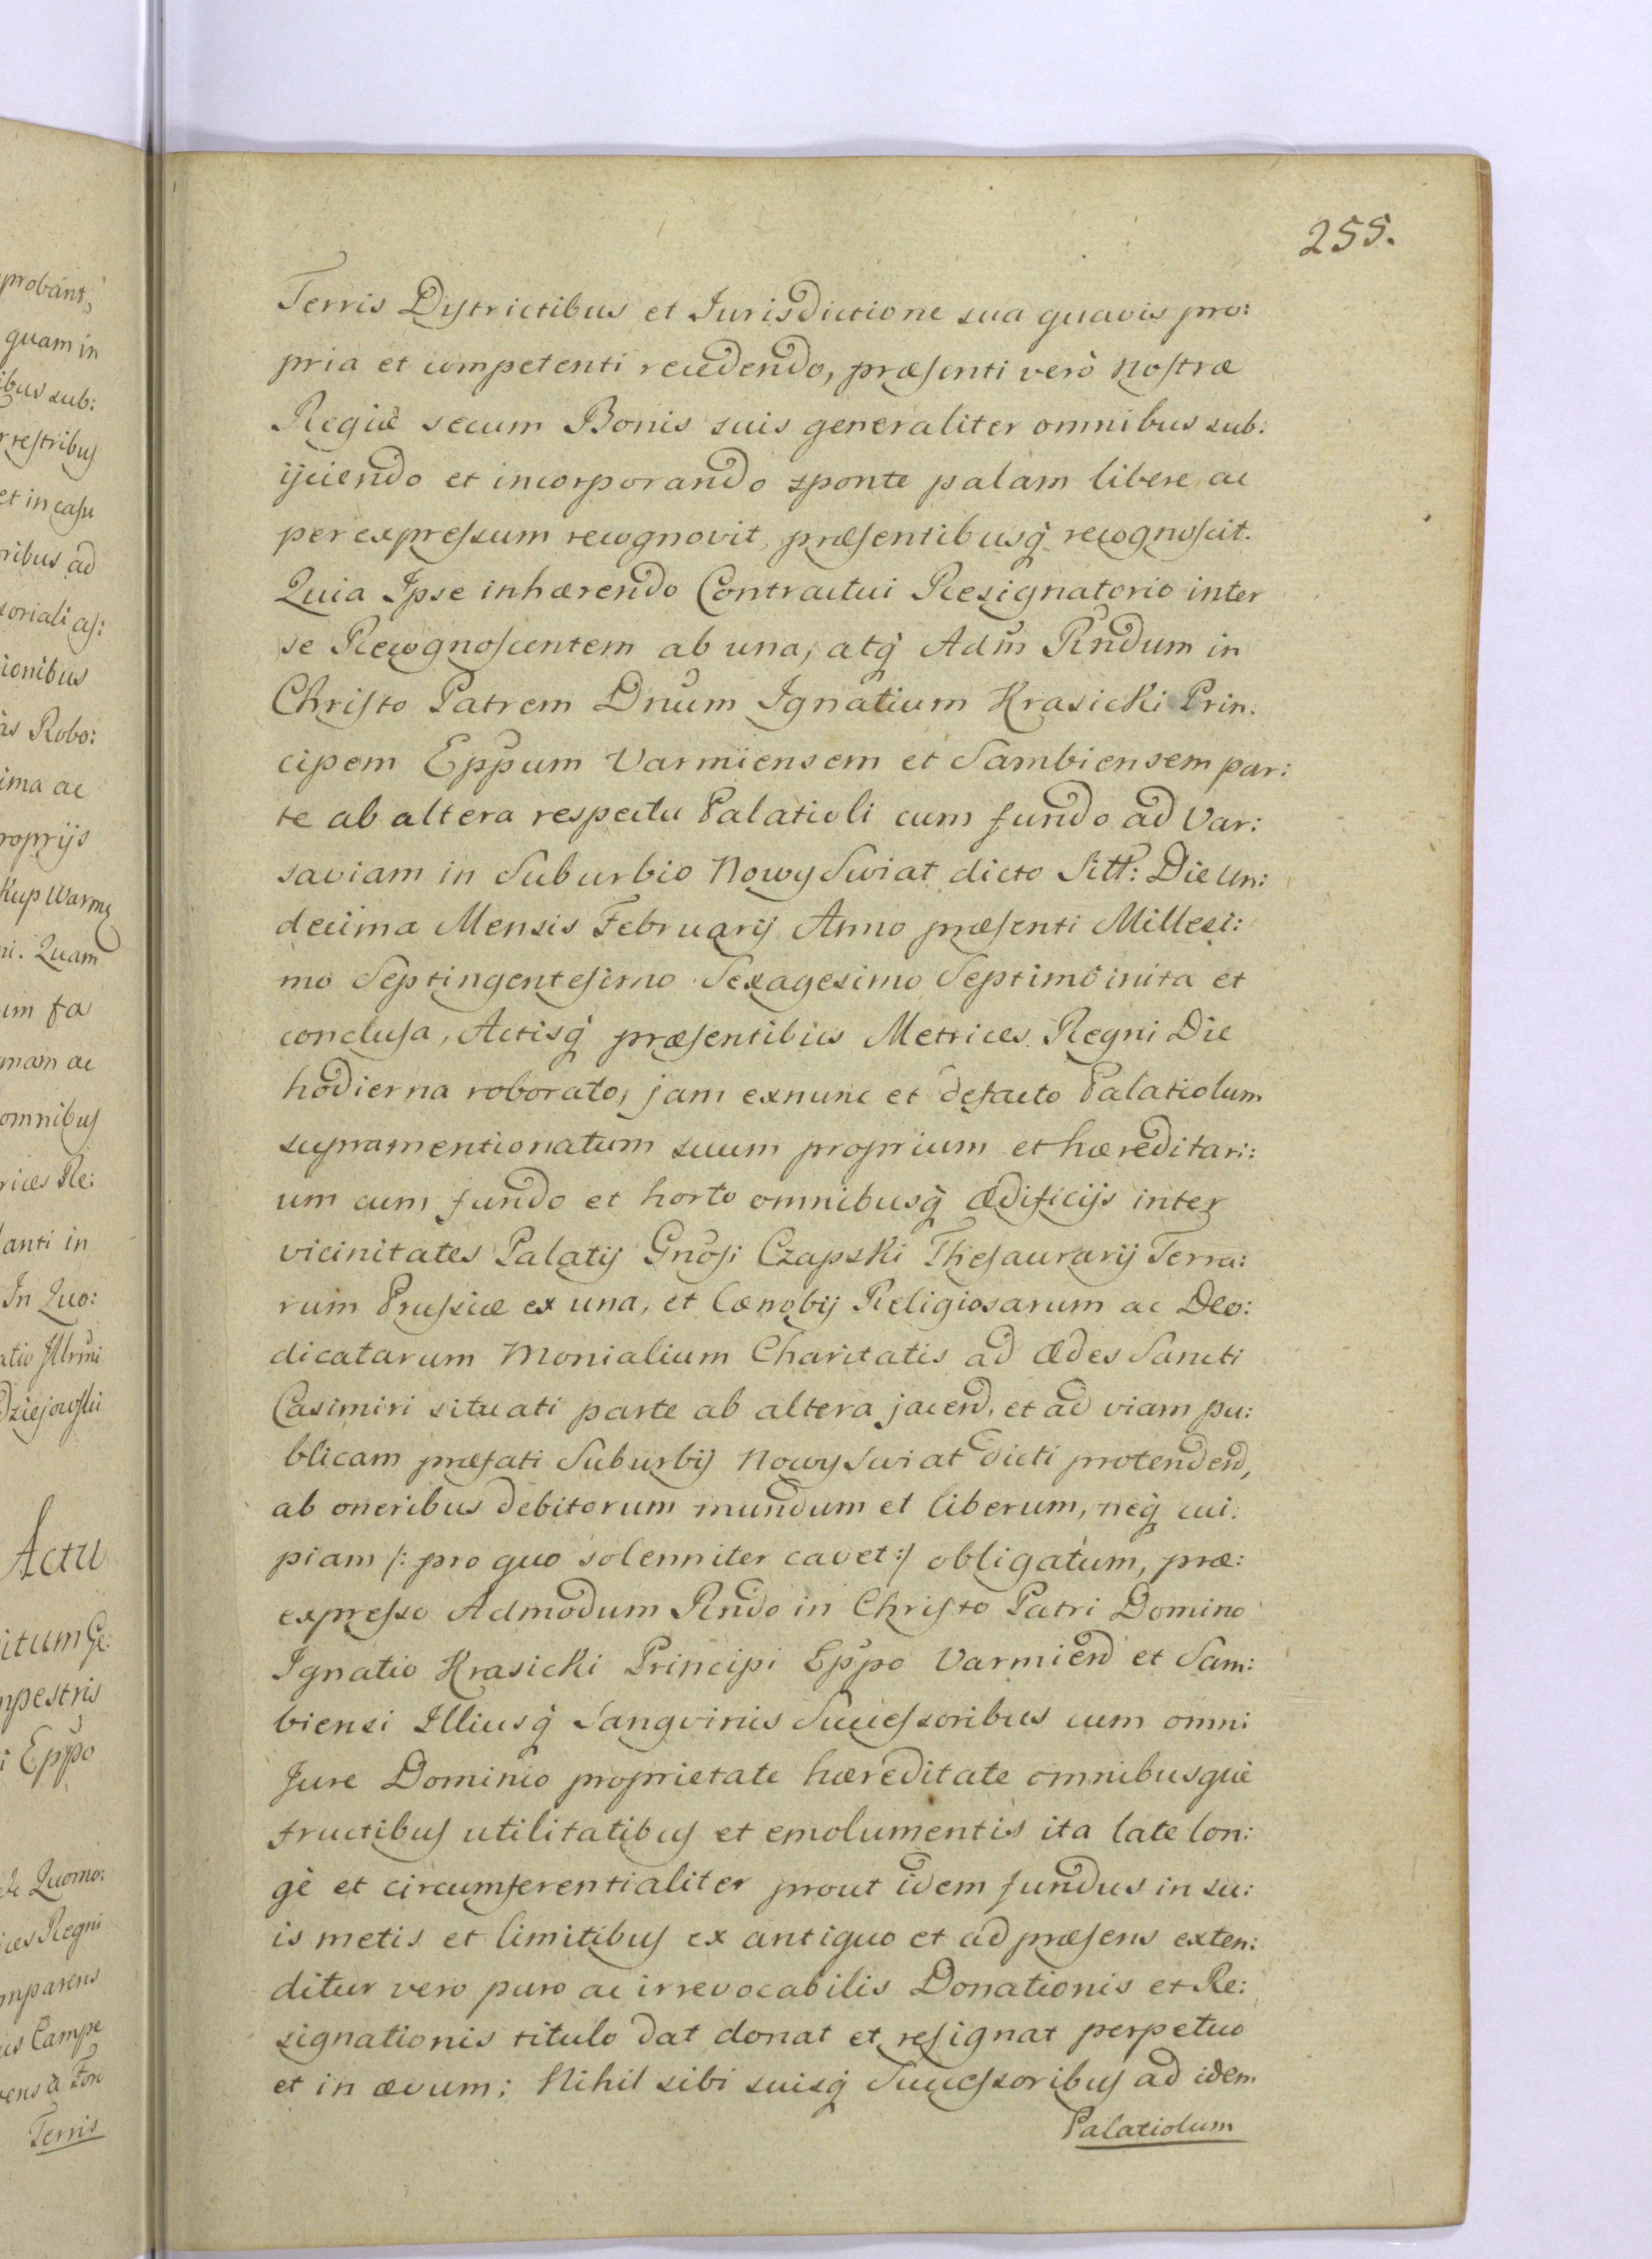 255.
Terris Districtibus et Jurisdictione sua quavis pro:
pria et competenti recedendo, præsenti verò Nostræ
Regiæ secum Bonis suis generaliter omnibus sub:
ijciendo et incorporando sponte palam libere ac
per expressum recognovit, præsentibusq̀ recognoscit.
Quia Ipse inhærendo Contractui Resignatorio inter
se Recognoscentem ab una, atq̀ Adm̃ Rñdum in
Christo Patrem Dñum Ignatium Krasicki Prin:
cipem Epp̃um Varmiensem et Sambiensem par:
te ab altera respectu Palatioli cum fundo ad Var:
saviam in Suburbio Nowy Swiat dicto Sitt: Die Un:
decima Mensis Februarij Anno præsenti Millesi:
mo Septingentesimo Sexagesimo Septimo inita et
conclusa, Actisq̀ præsentibus Metrices Regni Die
hodierna roborato, jam exnunc et defacto Palatiolum
supramentionatum suum proprium et hæreditari:
um cum fundo et horto omnibusq̀ ædificijs inter
vicinitates Palatij Gñosi Czapski Thesaurarij Terra:
rum Prussiæ ex una, et Cænobij Religiosarum ac Deo:
dicatarum Monialium Charitatis ad Ædes Sancti
Casimiri situati parte ab altera jacend, et ad viam pu:
blicam præfati Suburbij Nowy Swiat dicti protendend,
ab oneribus debitorum mundum et liberum, neq̀ cui:
piam /: pro quo solenniter cavet :/ obligatum, præ:
expresso Admodum Rñdo in Christo Patri Domino
Ignatio Krasicki Principi Epp̃o Varmien̄ et Sam:
biensi Illiusq̀ Sangvinis Successoribus cum omni
Jure Dominio proprietate hæreditate omnibusque
fructibus utilitatibus et emolumentis ita late lon:
gè et circumferentialiter prout idem fundus in su:
is metis et limitibus ex antiquo et ad præsens exten:
ditur vero puro ac irrevocabilis Donationis et Re:
signationis titulo dat donat et resignat perpetuo
et in ævum; Nihil sibi suisq̀ Successoribus ad idem
Palatiolum
probant,
quam in
ibus sub:
rrestribus
et in casu
ribus ad
soriali as:
ionibus
as Robo:
ima ac
roprijs
kup Warm
ni. Quam
um fa
mam ac
omnibus
rices Re:
anti in
In Quo:
atio Illrm̃i
dziejowski
Actu
itum Ge:
mpestris
i Epp̃o
de Quomo:
ices Regni
mparens
us Campe
ens à
Terris